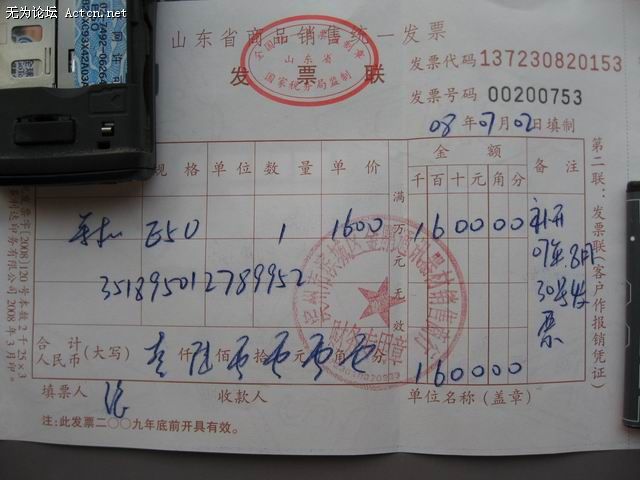 无为论坛 Actcn.net
山东省商品销售统一发票
发票联
全国统一发票监制章
山东省
国家税务局监制
发票代码 137230820153
发票号码 00200753
08年07月02日填制
规格 单位 数量 单价 金额 备注
千百十元角分
E50 1 1600 160000 补开
07年8月
30号发
票
351895012789952
满万元无效
合计
人民币(大写) 壹仟陆佰零拾零元零角零分 160000
填票人 收款人 单位名称(盖章)
注:此发票二〇〇九年底前开具有效。
第二联:发票联(客户作报销凭证)
财务专用章